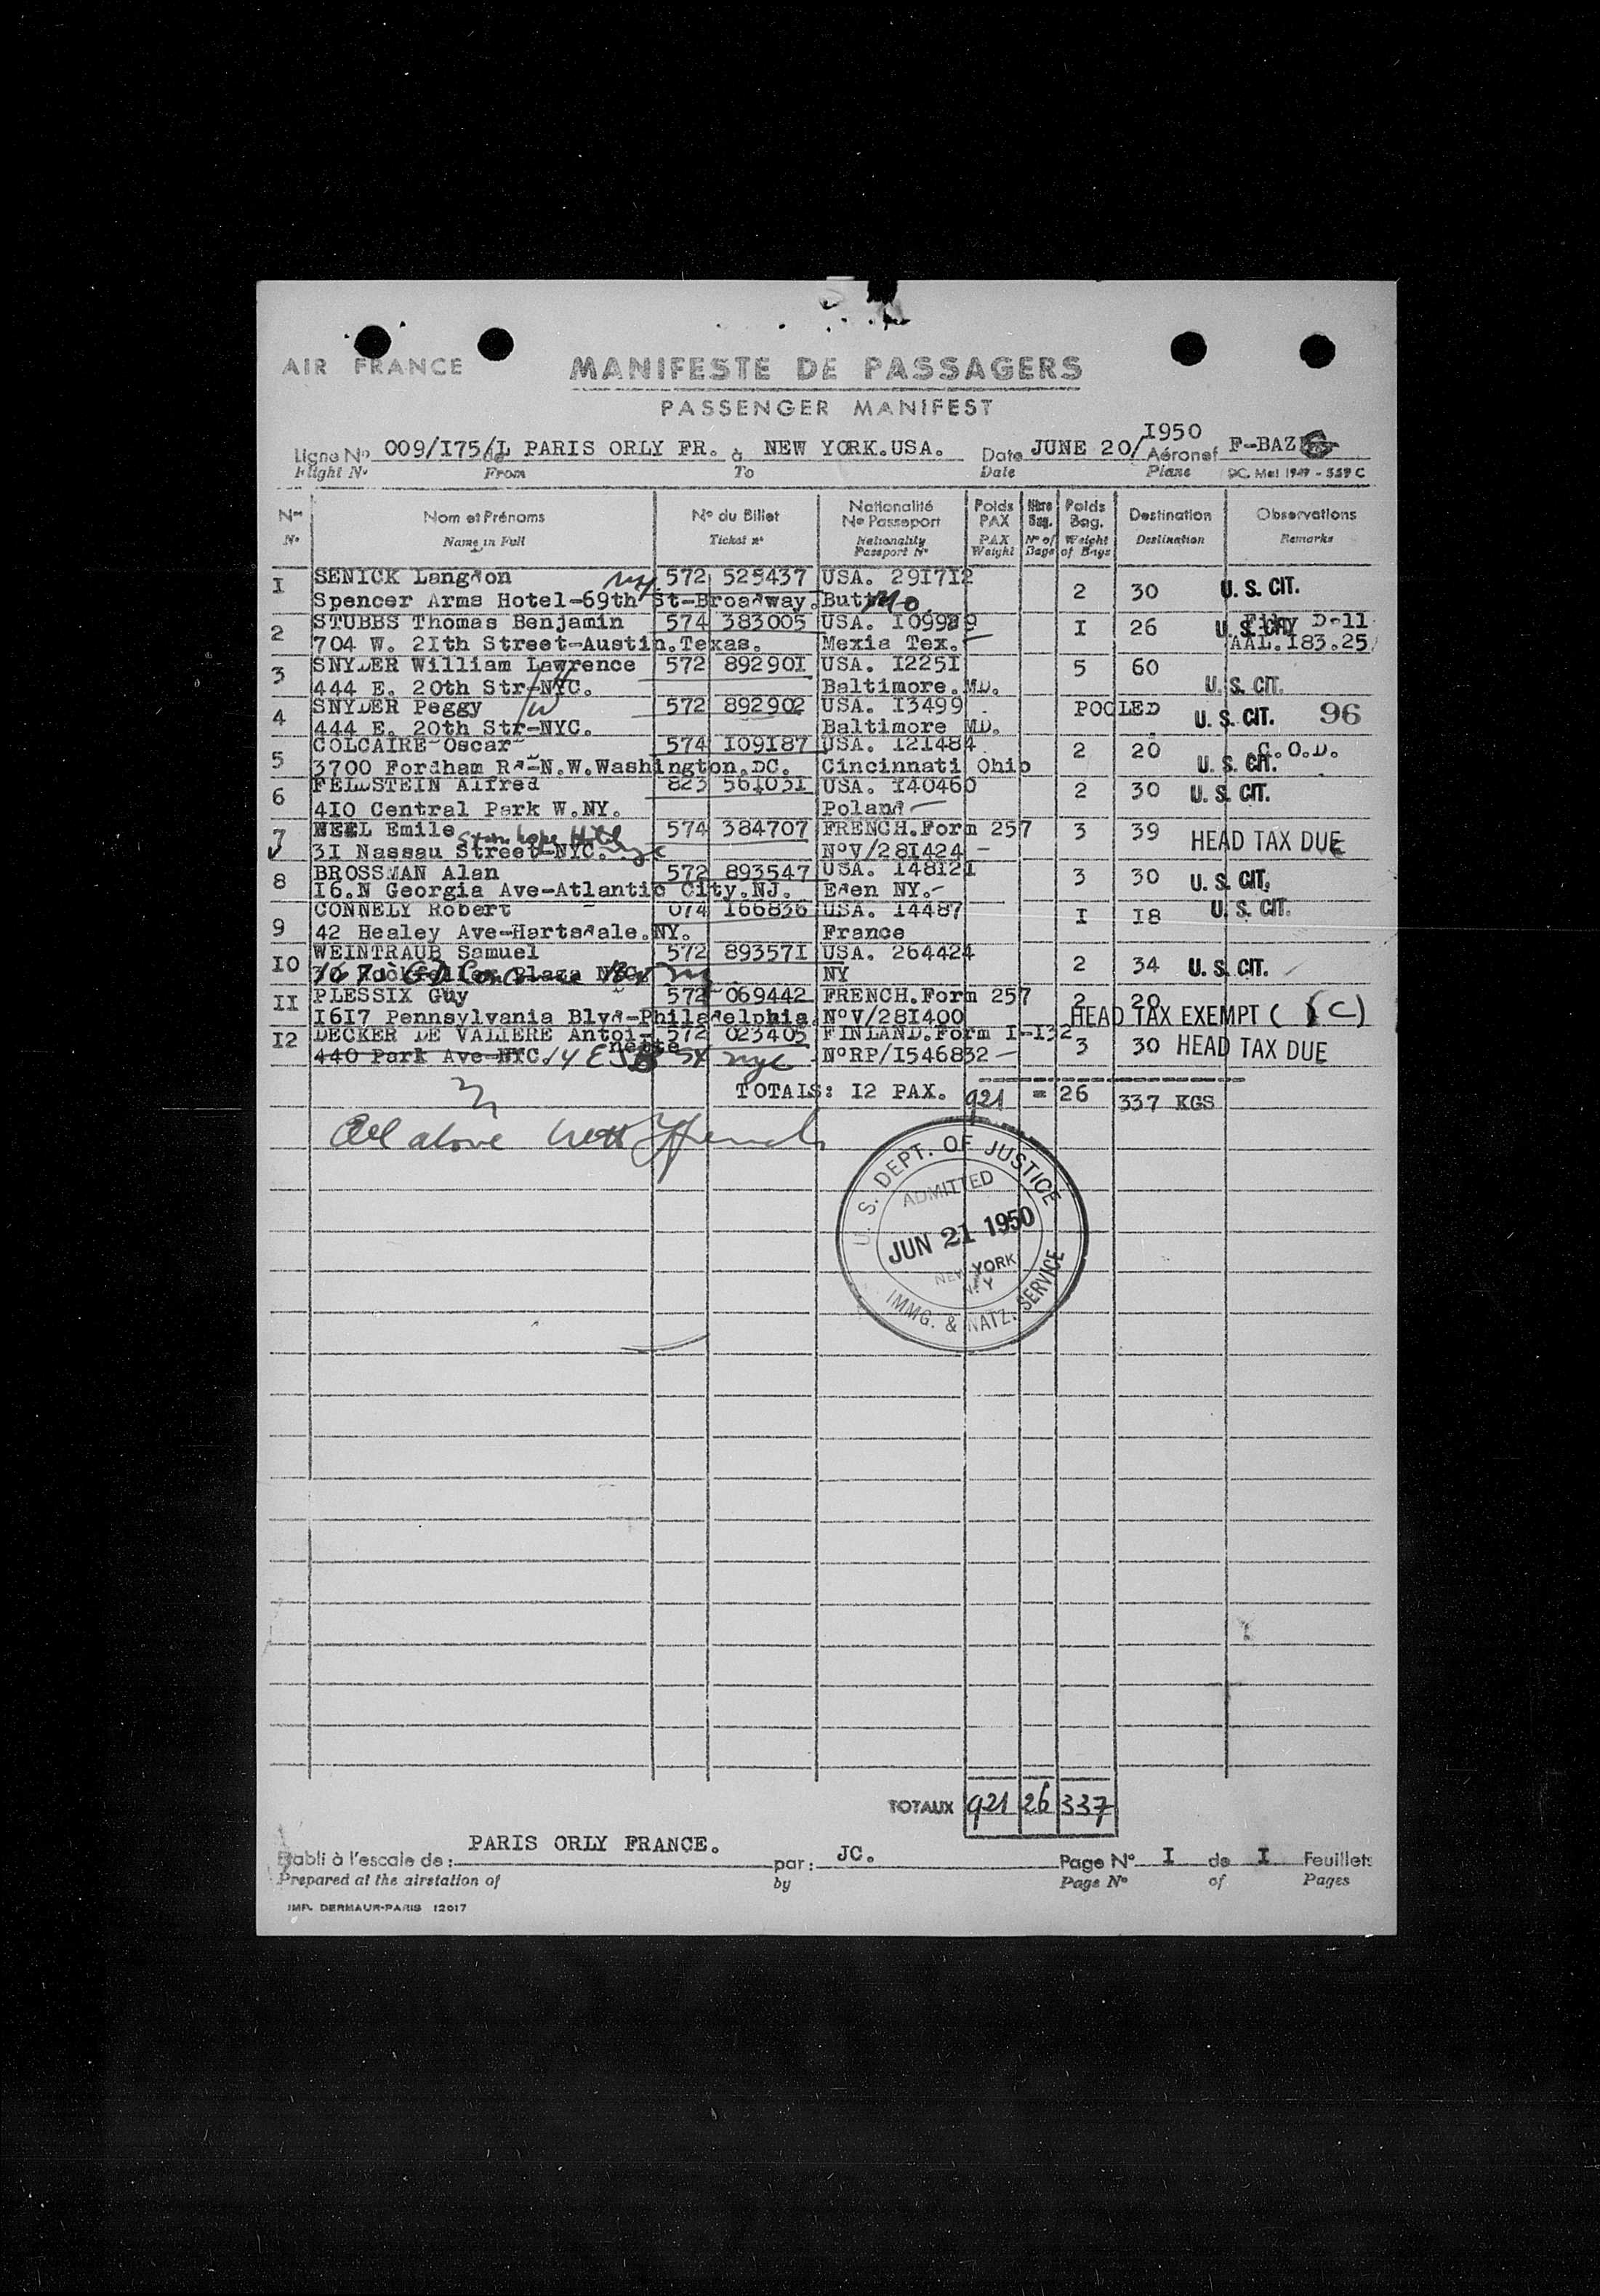 AIR FRANCE
MANIFESTE DE PASSAGERS
PASSENGER MANIFEST
Ligne No 009/I75/L de PARIS ORLY FR. à NEW YORK.USA. Date JUNE 20/ I950 Aéronef F-BAZ
Flight No From To Date Plane DC. Mel 1949 - 559 C
Nos Nom et Prénoms No du Billet Nationalité No Passeport Poids PAX Nbre Bag. Poids Bag. Destination Observations
No Name in Full Ticket no Nationality Passport No PAX Weight No of Bags Weight of Bags Destination Remarks
I SENICK Langdon 572 525437 USA. 29I7I2 2 30 U. S. CIT.
Spencer Arms Hotel-69th St-Broadway. NY Butt Mo.
2 STUBBS Thomas Benjamin 574 383005 USA. I09989 I 26 U. S. CIT. D-ll
704 W. 2Ith Street-Austin.Texas. Mexia Tex. AAL.I83.25
3 SNYDER William Lawrence 572 89290I USA. I225I 5 60
444 E. 20th Str-NYC. H Baltimore.MD. U. S. CIT.
4 SNYDER Peggy W 572 892902 USA. I3499 POOLED U. S. CIT. 96
444 E. 20th Str-NYC. Baltimore MD.
5 COLCAIRE Oscar 574 I09I87 USA. I2I484 2 20 C.O.D.
3700 Fordham Rd-N.W.Washington.DC. Cincinnati Ohio U. S. CIT.
6 FELDSTEIN Alfred 823 56I03I USA. I40460 2 30 U. S. CIT.
4I0 Central Park W.NY. Poland
7 NEEL Emile Stanhope Hotel 574 384707 FRENCH.Form 257 3 39 HEAD TAX DUE
3I Nassau Street-NYC. nyc NoV/28I424
8 BROSSMAN Alan 572 893547 USA. I48I2I 3 30 U. S. CIT.
I6.N Georgia Ave-Atlantic City.NJ. Eden NY.
9 CONNELY Robert 074 I66836 USA. I4487 I I8 U. S. CIT.
42 Healey Ave-Hartsdale.NY. France
I0 WEINTRAUB Samuel 572 89357I USA. 264424 2 34 U. S. CIT.
30 Rockfeller Plaza NYC. NY
II PLESSIX Guy 572 069442 FRENCH.Form 257 2 20
I6I7 Pennsylvania Blvd-Philadelphia. NoV/28I400 HEAD TAX EXEMPT ( C)
I2 DECKER DE VALIERE Antoi-nette 572 023405 FINLAND.Form I-I32 3 30 HEAD TAX DUE
440 Park Ave-NYC. 14 E 58 St nyc NoRP/I546832
TOTALS: I2 PAX. 921 = 26 337 KGS
All above
U. S. DEPT. OF JUSTICE
ADMITTED
JUN 21 1950
NEW YORK
N. Y
IMMG. & NATZ. SERVICE
TOTAUX 921 26 337
Etabli à l'escale de : PARIS ORLY FRANCE. par : JC. Page No I de I Feuillets
Prepared at the airstation of by Page No of Pages
IMP. DERMAUR-PARIS 12017